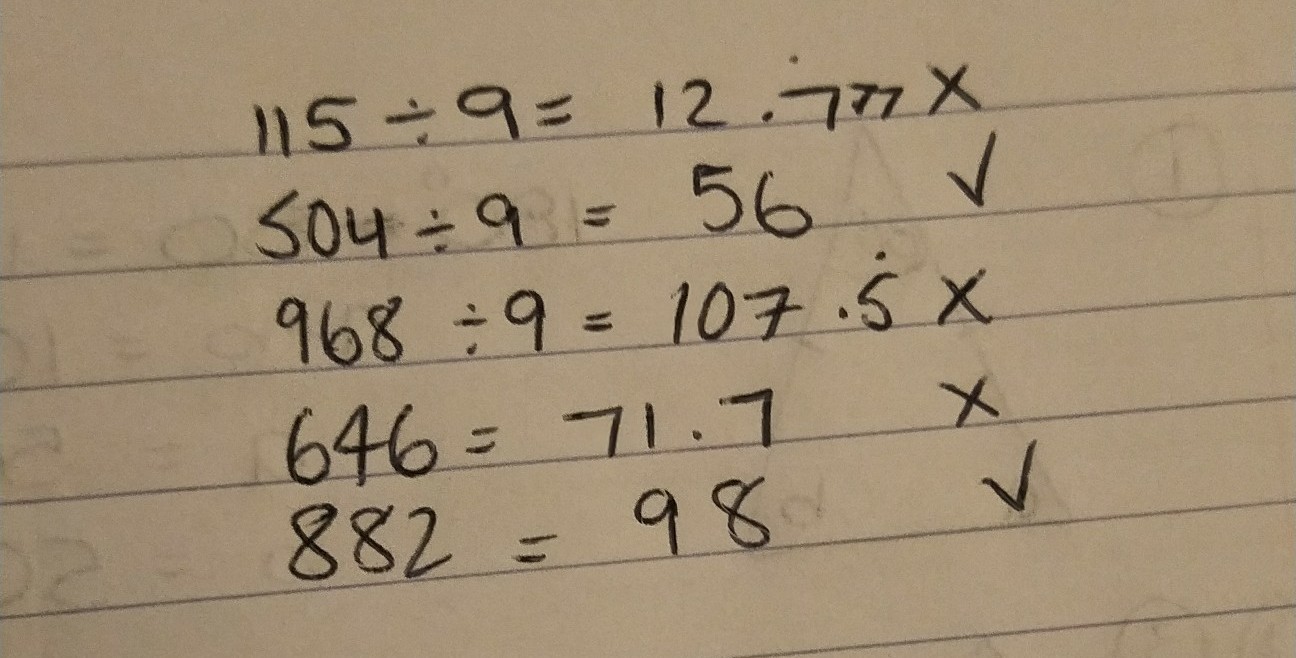 115 ÷ 9 = 12.7̇77 X
504 ÷ 9 = 56 ✓
968 ÷ 9 = 107.5̇ X
646 = 71.7 X
882 = 98 ✓